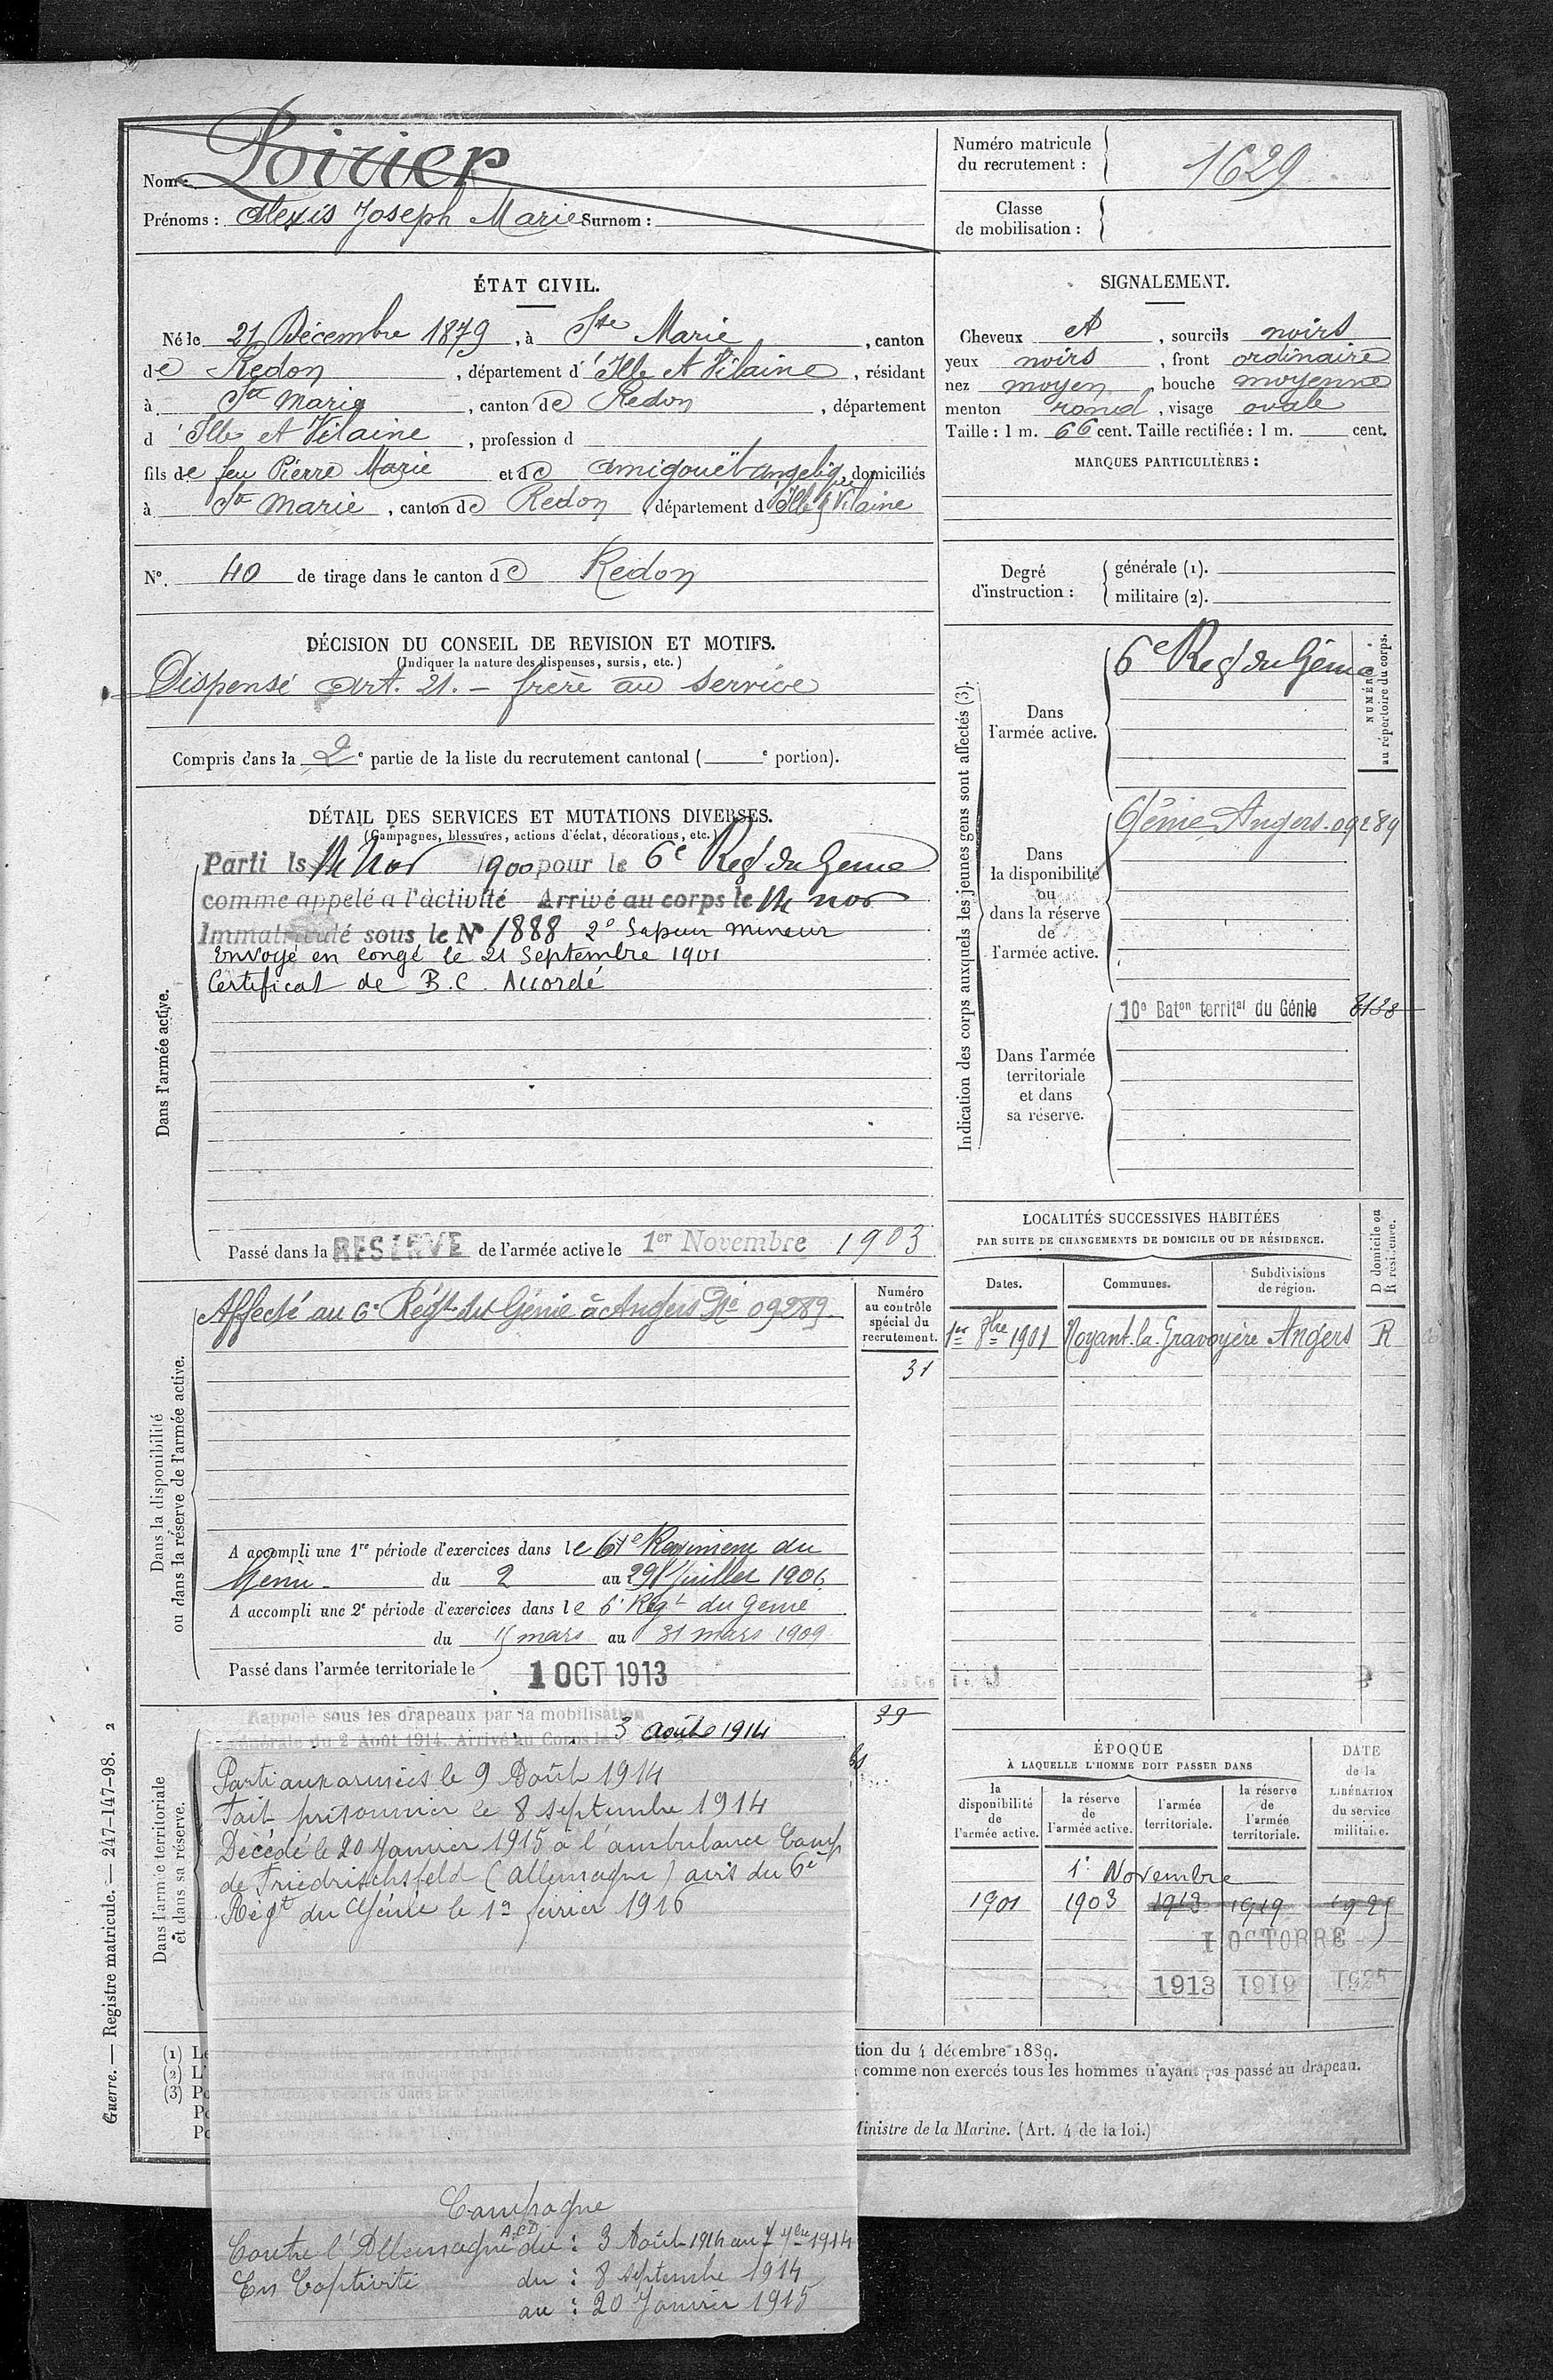 Nom : Poirier
Prénoms : Alexis Joseph Marie Surnom :
Numéro matricule du recrutement : 1629
Classe de mobilisation :
ÉTAT CIVIL.
Né le 21 Décembre 1879, à Ste Marie, canton
de Redon, département d'Ille et Vilaine, résidant
à Ste Marie, canton de Redon, département
d'Ille et Vilaine, profession d
fils de feu Pierre Marie et de Amigouët Angelique, domiciliés
à Ste Marie, canton de Redon, département d'Ille & Vilaine
N°. 40 de tirage dans le canton de Redon
SIGNALEMENT.
Cheveux et, sourcils noirs
yeux noirs, front ordinaire
nez moyen, bouche moyenne
menton rond, visage ovale
Taille : 1 m. 66 cent. Taille rectifiée : 1 m. cent.
MARQUES PARTICULIÈRES :
Degré d'instruction :
générale (1).
militaire (2).
DÉCISION DU CONSEIL DE REVISION ET MOTIFS.
(Indiquer la nature des dispenses, sursis, etc.)
Dispensé Art. 21. - frère au service
Compris dans la 2e partie de la liste du recrutement cantonal ( e portion).
DÉTAIL DES SERVICES ET MUTATIONS DIVERSES.
(Campagnes, blessures, actions d'éclat, décorations, etc.)
Dans l'armée active.
Parti le 14 Nov 1900 pour le 6e Regt du Genie
comme appelé a l'activité Arrivé au corps le 14 nov
Immatriculé sous le N° 1888 2e Sapeur mineur
Envoyé en congé le 21 Septembre 1901
Certificat de B.C. Accordé
Passé dans la RESERVE de l'armée active le 1er Novembre 1903
Indication des corps auxquels les jeunes gens sont affectés (3).
NUMÉRO au répertoire du corps.
Dans l'armée active.
6e Regt du Génie
Dans la disponibilité ou dans la réserve de l'armée active.
6 Génie Angers. 09289
Dans l'armée territoriale et dans sa réserve.
10e Baton territal du Génie 8138
LOCALITÉS SUCCESSIVES HABITÉES
PAR SUITE DE CHANGEMENTS DE DOMICILE OU DE RÉSIDENCE.
Dates. Communes. Subdivisions de région. D domicile ou R résidence.
1er 8bre 1901 Noyant-la-Gravoyère Angers R
Dans la disponibilité ou dans la réserve de l'armée active.
Numéro au contrôle spécial du recrutement.
31
Affecté au 6e Régt du Génie à Angers No 09289.
A accompli une 1re période d'exercices dans le 6e Regiment du
Genie du 2 au 29 Juillet 1906
A accompli une 2e période d'exercices dans le 6e Régt du Genie
du 15 mars au 31 mars 1909
Passé dans l'armée territoriale le 1 OCT 1913
Dans l'armée territoriale et dans sa réserve.
39
Rappelé sous les drapeaux par la mobilisation
générale du 2 Août 1914. Arrivé au Corps le 3 août 1914
Parti aux armées le 9 Août 1914
Fait prisonnier le 8 septembre 1914
Décédé le 20 Janvier 1915 à l'ambulance Camp
de Friedrischsfeld (Allemagne) avis du 6e
Régt du Génie le 12 février 1916
Campagne
Contre l'Allemagne A.C.D du : 3 Août 1914 au 7 7bre 1914
En Captivité du : 8 septembre 1914
au : 20 Janvier 1915
ÉPOQUE
À LAQUELLE L'HOMME DOIT PASSER DANS
la disponibilité de l'armée active. la réserve de l'armée active. l'armée territoriale. la réserve de l'armée territoriale.
DATE de la LIBÉRATION du service militaire.
1er Novembre
1901 1903 1913 1919 1925
1 OCTOBRE
1913 1919 1925
(1) Le
(2) L'
(3) Po
tion du 4 décembre 1889.
comme non exercés tous les hommes n'ayant pas passé au drapeau.
Ministre de la Marine. (Art. 4 de la loi.)
Guerre. — Registre matricule. — 247-147-98. 2